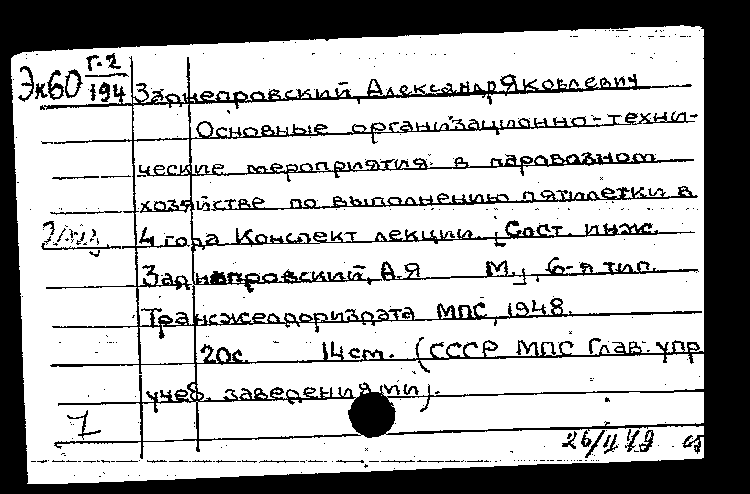 Эк60 Г-2/194
Заднепровский, Александр Яковлевич
Основные организационно-техни-
ческие мероприятия в паровозном
хозяйстве по выполнению пятилетки в
4 года Конспект лекции. [Сост. инж.
Заднепровский, А.Я М.], 6-я тип.
Трансжелдориздата МПС, 1948.
20с. 14 ст. (СССР МПС Глав. упр
учеб. заведениями).
1
26/II 49